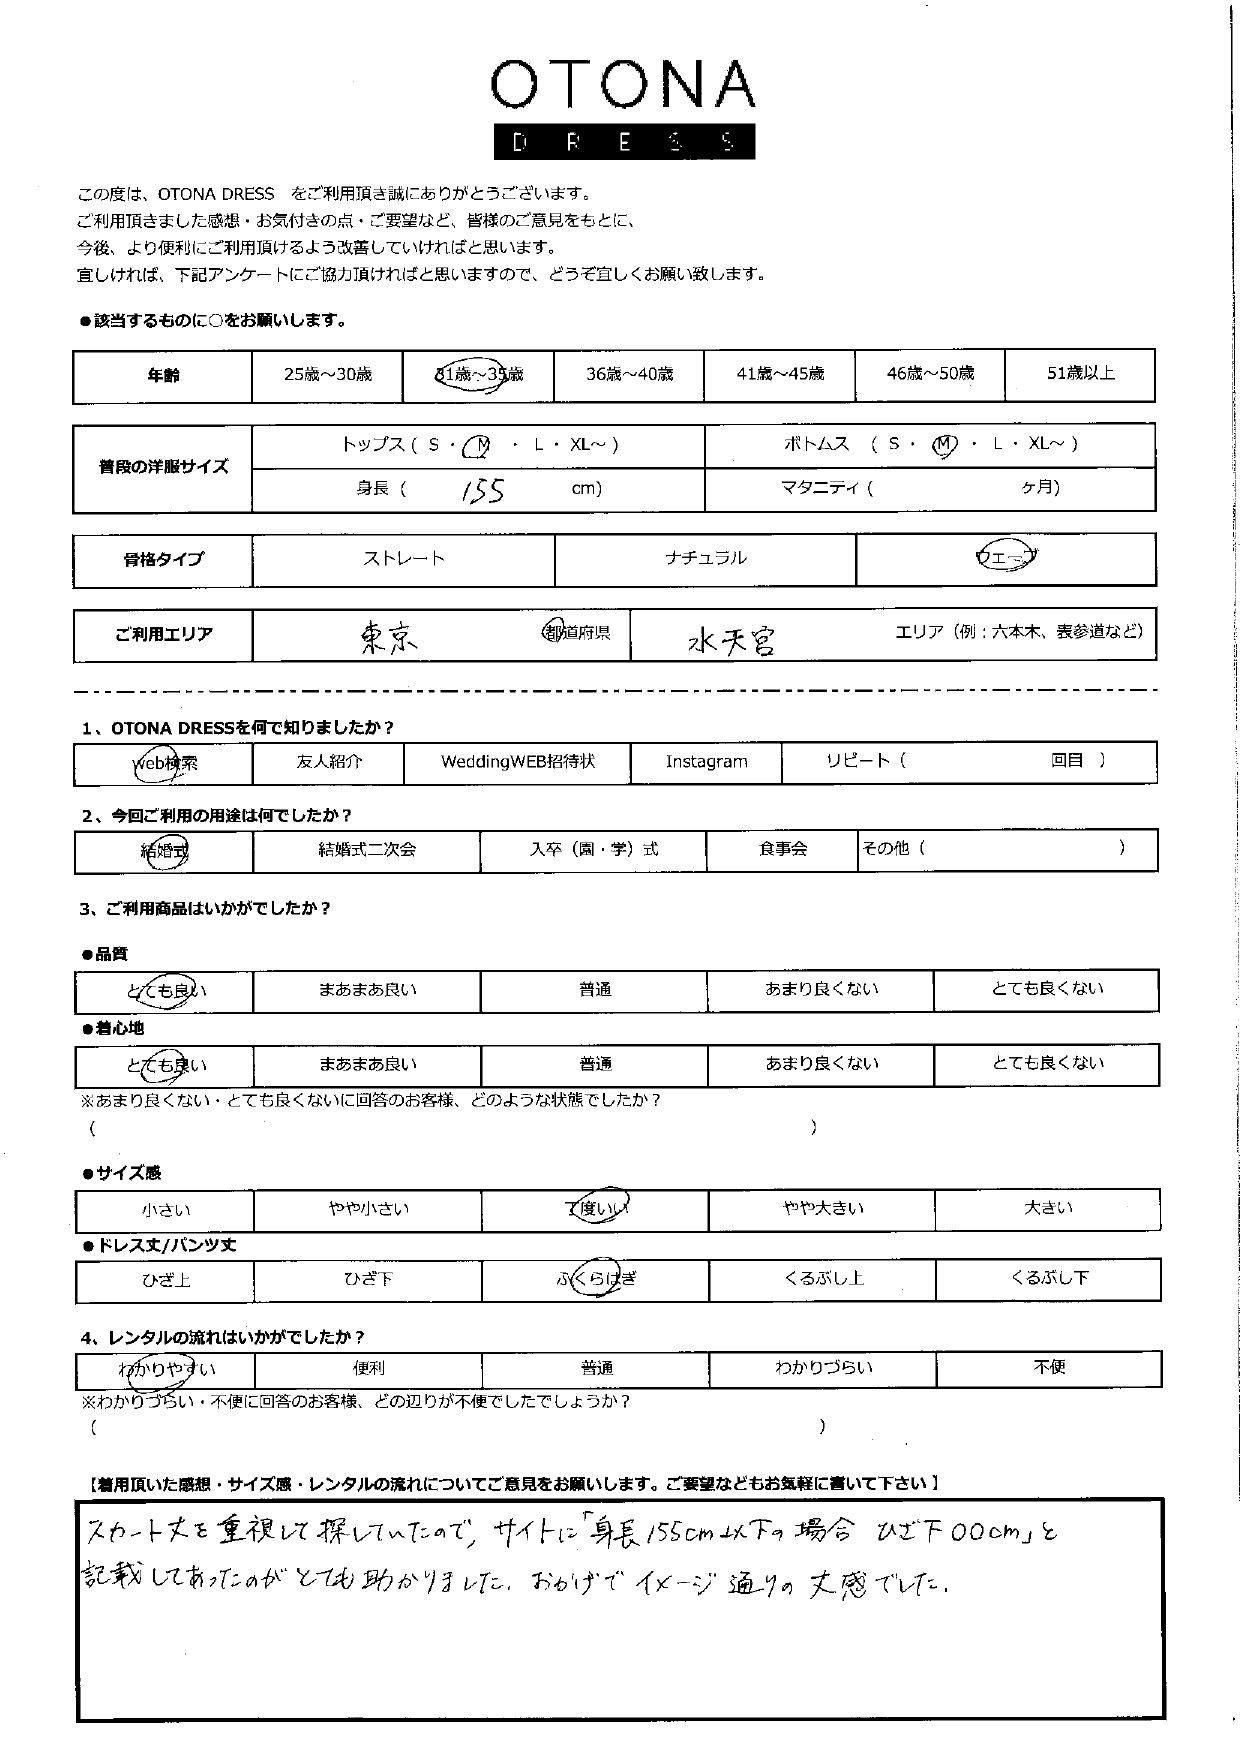 OTONA
DRESS
この度は、OTONA DRESS をご利用頂き誠にありがとうございます。
ご利用頂きました感想・お気付きの点・ご要望など、皆様のご意見をもとに、
今後、より便利にご利用頂けるよう改善していければと思います。
宜しければ、下記アンケートにご協力頂ければと思いますので、どうぞ宜しくお願い致します。
●該当するものに○をお願いします。
年齢 25歳～30歳 31歳～35歳 36歳～40歳 41歳～45歳 46歳～50歳 51歳以上
普段の洋服サイズ トップス ( S ・ M ・ L ・ XL～ ) ボトムス ( S ・ M ・ L ・ XL～ )
身長 ( 155 cm) マタニティ ( ケ月)
骨格タイプ ストレート ナチュラル ウェーブ
ご利用エリア 東京 都道府県 水天宮 エリア（例：六本木、表参道など）
1、OTONA DRESSを何で知りましたか？
web検索 友人紹介 WeddingWEB招待状 Instagram リピート ( 回目 )
2、今回ご利用の用途は何でしたか？
結婚式 結婚式二次会 入卒（園・学）式 食事会 その他 ( )
3、ご利用商品はいかがでしたか？
●品質
とても良い まあまあ良い 普通 あまり良くない とても良くない
●着心地
とても良い まあまあ良い 普通 あまり良くない とても良くない
※あまり良くない・とても良くないに回答のお客様、どのような状態でしたか？
( )
●サイズ感
小さい やや小さい 丁度いい やや大きい 大きい
●ドレス丈/パンツ丈
ひざ上 ひざ下 ふくらはぎ くるぶし上 くるぶし下
4、レンタルの流れはいかがでしたか？
わかりやすい 便利 普通 わかりづらい 不便
※わかりづらい・不便に回答のお客様、どの辺りが不便でしたでしょうか？
( )
【着用頂いた感想・サイズ感・レンタルの流れについてご意見をお願いします。ご要望などもお気軽に書いて下さい】
スカート丈を重視して探していたので、サイトに「身長155cm以下の場合 ひざ下00cm」と
記載してあったのがとても助かりました。おかげでイメージ通りの丈感でした。